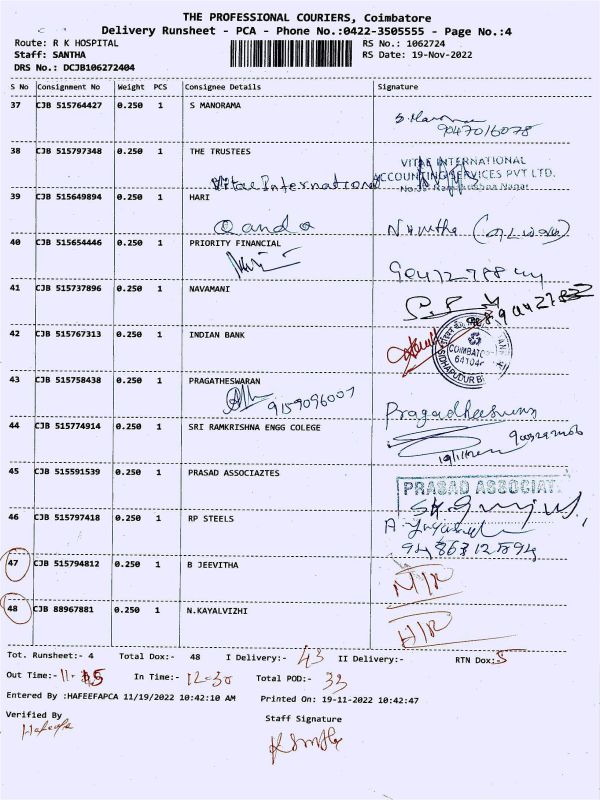 THE PROFESSIONAL COURIERS, Coimbatore
Delivery Runsheet - PCA - Phone No.:0422-3505555 - Page No.:4
Route: R K HOSPITAL RS No.: 1062724
Staff: SANTHA RS Date: 19-Nov-2022
DRS No.: DCJB106272404
S No Consignment No Weight PCS Consignee Details Signature
37 CJB 515764427 0.250 1 S MANORAMA
9047016078
38 CJB 515797348 0.250 1 THE TRUSTEES
VITAE INTERNATIONAL
ACCOUNTING SERVICES PVT LTD.
Vitae International
39 CJB 515649894 0.250 1 HARI
40 CJB 515654446 0.250 1 PRIORITY FINANCIAL
41 CJB 515737896 0.250 1 NAVAMANI
42 CJB 515767313 0.250 1 INDIAN BANK
43 CJB 515758438 0.250 1 PRAGATHESWARAN
9159096007
44 CJB 515774914 0.250 1 SRI RAMKRISHNA ENGG COLEGE
45 CJB 515591539 0.250 1 PRASAD ASSOCIAZTES
PRASAD ASSOCIAT
46 CJB 515797418 0.250 1 RP STEELS
47 CJB 515794812 0.250 1 B JEEVITHA
48 CJB 88967881 0.250 1 N.KAYALVIZHI
Tot. Runsheet:- 4 Total Dox:- 48 I Delivery:- 43 II Delivery:- RTN Dox:5
Out Time:- In Time:- 12-30 Total POD:- 33
Entered By :HAFEEFAPCA 11/19/2022 10:42:10 AM Printed On: 19-11-2022 10:42:47
Verified By Staff Signature
Hafeefa